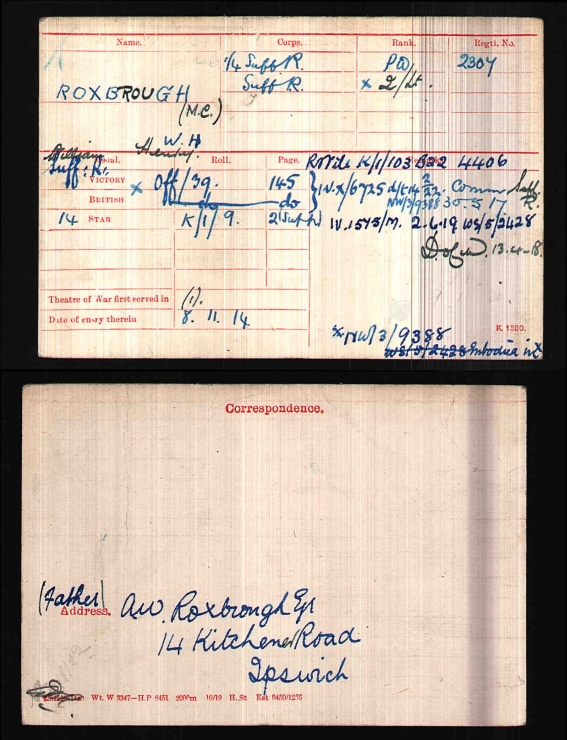 Name. Corps. Rank. Regtl. No.
1/4 Suff R. Pte 2307
Suff R. x 2/Lt.
ROXBROUGH
(M.C.)
W. H
William Henry.
Medal. Roll. Page. Remarks.
Suff. R.
VICTORY x Off/39. 145
BRITISH do do
14 STAR K/1/9. 2(Suff R)
R.O. Vide K/1/103 Ba2 4406
I.V.X/6725 Comm Suff R.
NW/3/9388 30-5-17
IV.1545/M. 2.6.19 WS/5/2428
D of W. 13-4-18.
Theatre of War first served in (1).
Date of entry therein 8. 11. 14
K. 1380.
x NW/3/9388
WS/5/2428 Embodied in x
Correspondence.
(Father)
Address. A.W. Roxbrough Esq
14 Kitchener Road
Ipswich
Wt. W 3347—H.P 6451 200m 10/19 H.St